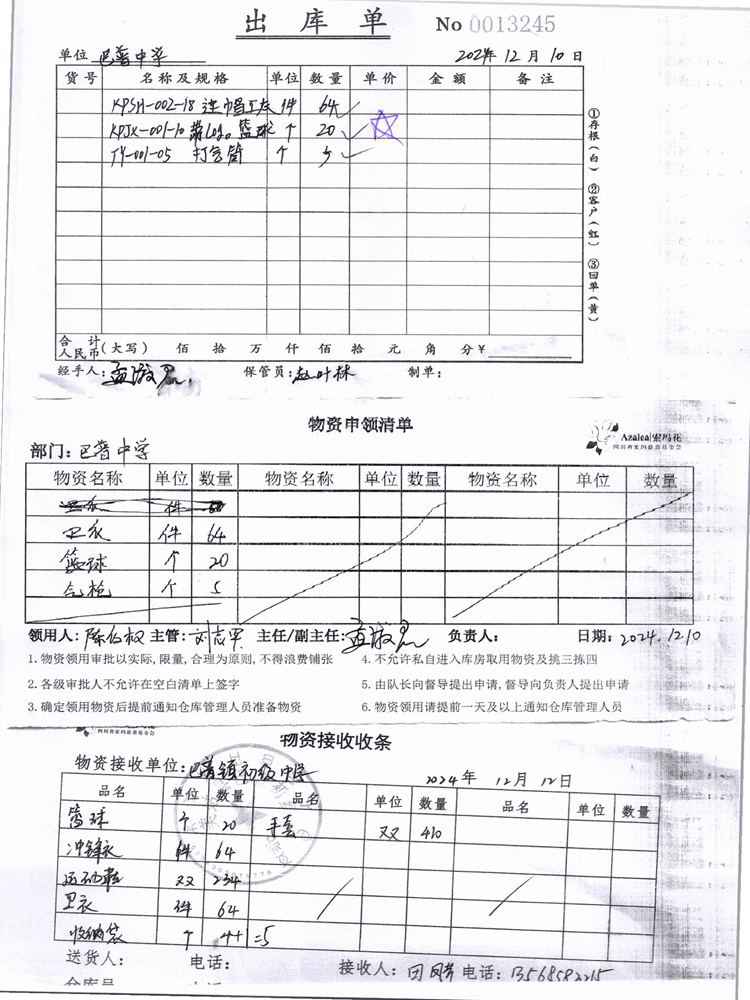 出库单 No 0013245
单位 巴普中学 2024年12月10日
货号 名称及规格 单位 数量 单价 金额 备注
KPSH-002-18 连帽卫衣 件 64
KPJX-001-10 带Logo篮球 个 20
TY-001-05 打气筒 个 5
①存根(白) ②客户(红) ③回单(黄)
合计人民币(大写) 佰 拾 万 仟 佰 拾 元 角 分¥
经手人: 保管员:赵叶林 制单:
物资申领清单
Azalea|索玛花
部门:巴普中学
物资名称 单位 数量 物资名称 单位 数量 物资名称 单位 数量
卫衣 件 64
篮球 个 20
气枪 个 5
领用人: 主管: 主任/副主任: 负责人: 日期:2024.12.10
1.物资领用审批以实际,限量,合理为原则,不得浪费铺张 4.不允许私自进入库房取用物资及挑三拣四
2.各级审批人不允许在空白清单上签字 5.由队长向督导提出申请,督导向负责人提出申请
3.确定领用物资后提前通知仓库管理人员准备物资 6.物资领用请提前一天及以上通知仓库管理人员
物资接收收条
物资接收单位:巴普镇初级中学 2024年12月12日
品名 单位 数量 品名 单位 数量 品名 单位 数量
篮球 个 20 手套 双 410
冲锋衣 件 64
运动鞋 双 234
卫衣 件 64
收纳袋 个 4+1=5
送货人: 电话: 接收人: 电话:13568582215